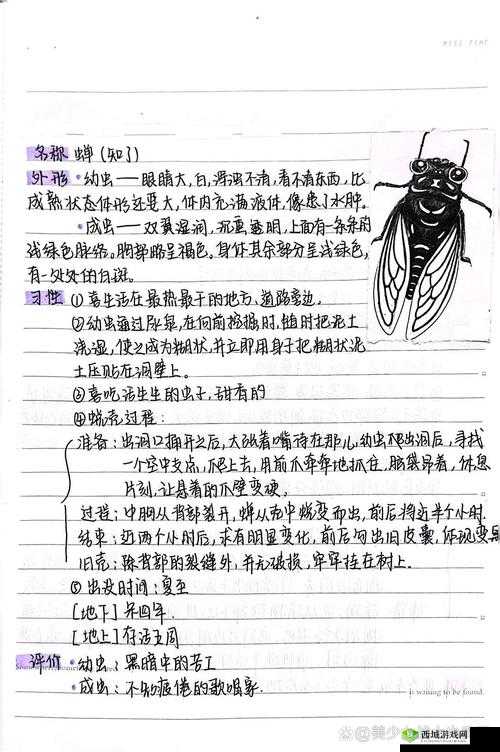 名称 蝉（知了）
外形 • 幼虫——眼睛大，白，浑浊不清，看不清东西，比
成熟状态体形还要大，体内充满液体，像患了水肿。
• 成虫——双翼湿润，沉重透明，上面有一条条的
浅绿色脉络。胸部略呈褐色。身体其余部分呈浅绿色，
有一处处的白斑。
习性 ①喜生活在最热最干的地方、道路旁边，
②幼虫通过尿，在向前挖掘时，随时把泥土
浇湿，使之成为糊状，并立即用身子把糊状泥
土压贴在洞壁上。
③喜吃活生生的虫子，甜有的
④蜕壳过程：
准备：出洞口捅开之后，大敞着嘴待在那儿，幼虫爬出洞后，寻找
一个空中支点，爬上去，用前爪牢牢地抓住，脑袋昂着，休息
片刻，让悬着的爪壁变硬。
过程：中胸从背部裂开，蝉从壳中蜕变而出，前后将近半个小时.
结束：近两个小时后，求有明显变化，前后钩出旧皮囊，体现变
旧壳：除背部的裂缝外，并无破损，牢牢挂在树上.
⑤出没时间：夏至
[地下] 呆四年.
[地上] 存活五周
评价 • 幼虫：黑暗中的苦工
• 成虫：不知疲倦的歌唱家.
is waiting to be found.
MISS FIND
西城游戏网